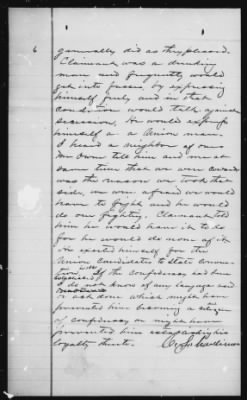 6
generally did as they pleased.
Claimant was a drinking
man and frequently would
get into fusses by expressing
himself freely and in that
condition would talk against
secession. He would express
himself as a Union man.
I heard a neighbor of ours
Mr Owen tell him and me at
same time that we were cowards
was the reason we took the
side, we were afraid we would
have to fight and he would
do our fighting. Claimant told
him he would have it to do
for he would do none of it.
He exerted himself for the
Union candidates to state conven-
tion. If the confederacy had been
I do not know of any language used
or act done which might have
prevented him becoming a citizen
of confederacy or might have
prevented him establishing his
loyalty thereto.